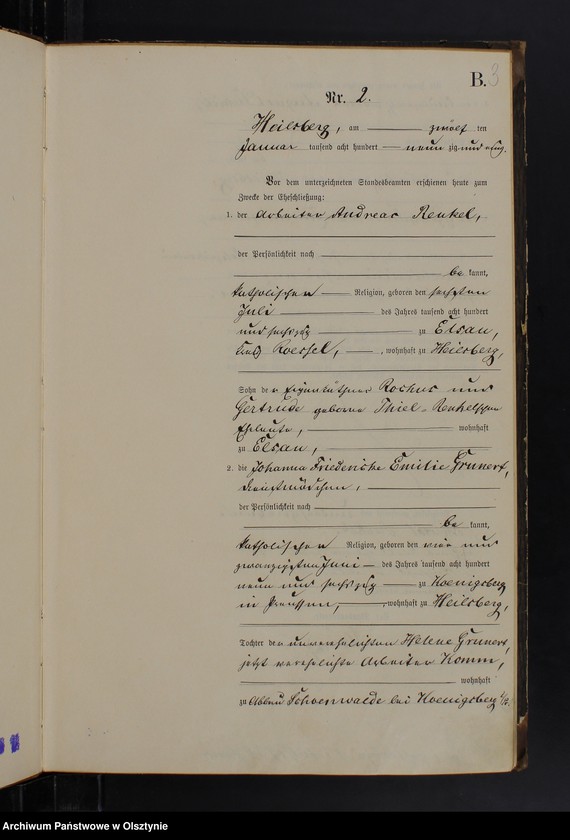 B. 3
Nr. 2.
Heilsberg, am zwölf ten
Januar tausend acht hundert neun zig und
Vor dem unterzeichneten Standesbeamten erschienen heute zum
Zwecke der Eheschließung:
1. der Arbeiter Andreas Renkel,
der Persönlichkeit nach
be kannt,
katholischen Religion, geboren den sechsten
Juli des Jahres tausend acht hundert
und sechszig zu Elsau,
Kreis Roessel, wohnhaft zu Heilsberg,
Sohn der Eigenkäthner Rochus und
Gertrude geborne Thiel-Renkelschen
Eheleute, wohnhaft
zu Elsau,
2. die Johanna Friederiche Emilie Grunert,
Dienstmädchen,
der Persönlichkeit nach
be kannt,
katholischen Religion, geboren den vier und
zwanzigsten Juni des Jahres tausend acht hundert
neun und sechszig zu Koenigsberg
in Preussen, wohnhaft zu Heilsberg,
Tochter der unverehelichten Helene Grunert,
jetzt verehelichte Arbeiter Komm,
wohnhaft
zu Abbau Schoenwalde bei Koenigsberg
Archiwum Państwowe w Olsztynie